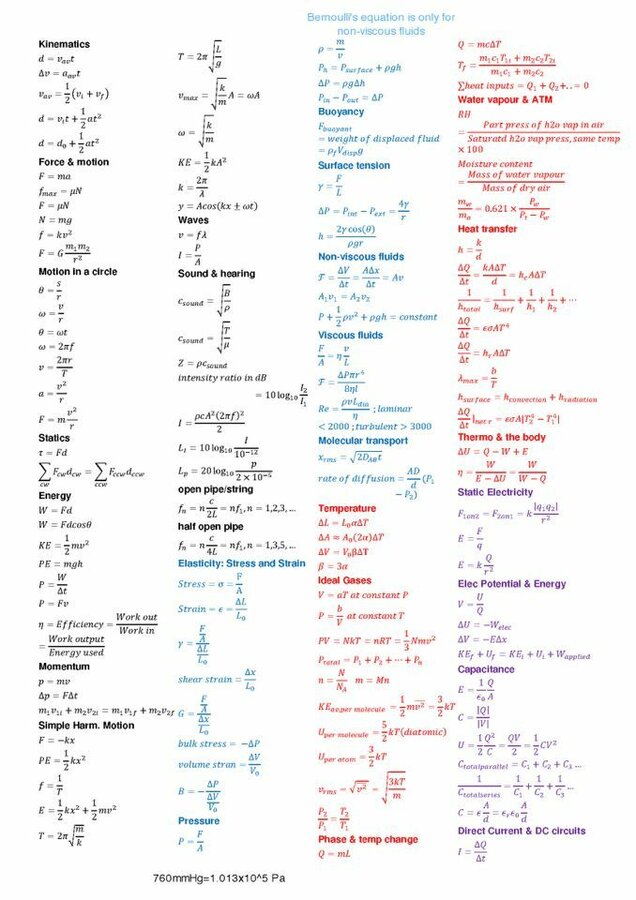 Bernoulli's equation is only for
non-viscous fluids
Kinematics
d = v_av t
Δv = a_av t
v_av = 1/2 (v_i + v_f)
d = v_i t + 1/2 at²
d = d_0 + 1/2 at²
Force & motion
F = ma
f_max = μN
F = μN
N = mg
f = kv²
F = G m_1m_2/r²
Motion in a circle
θ = s/r
ω = v/r
θ = ωt
ω = 2πf
v = 2πr/T
a = v²/r
F = m v²/r
Statics
τ = Fd
∑_cw F_cw d_cw = ∑_ccw F_ccw d_ccw
Energy
W = Fd
W = Fdcosθ
KE = 1/2 mv²
PE = mgh
P = W/Δt
P = Fv
η = Efficiency = Work out/Work in
= Work output/Energy used
Momentum
p = mv
Δp = FΔt
m_1v_1i + m_2v_2i = m_1v_1f + m_2v_2f
Simple Harm. Motion
F = −kx
PE = 1/2 kx²
f = 1/T
E = 1/2 kx² + 1/2 mv²
T = 2π√(m/k)
T = 2π√(L/g)
v_max = √(k/m) A = ωA
ω = √(k/m)
KE = 1/2 kA²
k = 2π/λ
y = Acos(kx ± ωt)
Waves
v = fλ
I = P/A
Sound & hearing
c_sound = √(B/ρ)
c_sound = √(T/μ)
Z = ρc_sound
intensity ratio in dB
= 10 log_10 I_2/I_1
I = ρcA²(2πf)²/2
L_I = 10 log_10 I/10^−12
L_p = 20 log_10 p/2 × 10^−5
open pipe/string
f_n = n c/2L = nf_1, n = 1,2,3, ...
half open pipe
f_n = n c/4L = nf_1, n = 1,3,5, ...
Elasticity: Stress and Strain
Stress = σ = F/A
Strain = ϵ = ΔL/L_0
γ = (F/A)/(ΔL/L_0)
shear strain = Δx/L_0
G = (F/A)/(Δx/L_0)
bulk stress = −ΔP
volume stran = ΔV/V_0
B = −ΔP/(ΔV/V_0)
Pressure
P = F/A
ρ = m/v
P_h = P_surface + ρgh
ΔP = ρgΔh
P_in − P_out = ΔP
Buoyancy
F_buoyant
= weight of displaced fluid
= ρ_f V_disp g
Surface tension
γ = F/L
ΔP = P_int − P_ext = 4γ/r
h = 2γcos(θ)/ρgr
Non-viscous fluids
ℱ = ΔV/Δt = AΔx/Δt = Av
A_1v_1 = A_2v_2
P + 1/2 ρv² + ρgh = constant
Viscous fluids
F/A = η v/L
ℱ = ΔPπr⁴/8ηl
Re = ρvL_dia/η ; laminar
< 2000 ; turbulent > 3000
Molecular transport
x_rms = √(2D_AB t)
rate of diffusion = AD/d (P_1
− P_2)
Temperature
ΔL = L_0αΔT
ΔA ≈ A_0(2α)ΔT
ΔV = V_0βΔT
β = 3α
Ideal Gases
V = aT at constant P
P = b/V at constant T
PV = NkT = nRT = 1/3 Nmv²
P_total = P_1 + P_2 + ⋯ + P_n
n = N/N_A m = Mn
KE_av,per molecule = 1/2 mv² = 3/2 kT
U_per molecule = 5/2 kT(diatomic)
U_per atom = 3/2 kT
v_rms = √(v²) = √(3kT/m)
P_2/P_1 = T_2/T_1
Phase & temp change
Q = mL
Q = mcΔT
T_f = m_1c_1T_1i + m_2c_2T_2i/m_1c_1 + m_2c_2
∑heat inputs = Q_1 + Q_2+. . = 0
Water vapour & ATM
RH
= Part press of h2o vap in air/Saturatd h2o vap press, same temp
× 100
Moisture content
= Mass of water vapour/Mass of dry air
m_w/m_a = 0.621 × P_w/P_t − P_w
Heat transfer
h = k/d
ΔQ/Δt = kAΔT/d = h_c AΔT
1/h_total = 1/h_surf + 1/h_1 + 1/h_2 + ⋯
ΔQ/Δt = eσAT⁴
ΔQ/Δt = h_r AΔT
λ_max = b/T
h_surface = h_convection + h_radiation
ΔQ/Δt |_net r = eσA|T_2⁴ − T_1⁴|
Thermo & the body
ΔU = Q − W + E
η = W/E − ΔU = W/W − Q
Static Electricity
F_1on2 = F_2on1 = k |q_1q_2|/r²
E = F/q
E = k Q/r²
Elec Potential & Energy
V = U/Q
ΔU = −W_elec
ΔV = −EΔx
KE_f + U_f = KE_i + U_i + W_applied
Capacitance
E = 1/ϵ_0 Q/A
C = |Q|/|V|
U = 1/2 Q²/C = QV/2 = 1/2 CV²
C_totalparallel = C_1 + C_2 + C_3 ...
1/C_totalseries = 1/C_1 + 1/C_2 + 1/C_3 ...
C = ϵ A/d = ϵ_r ϵ_0 A/d
Direct Current & DC circuits
I = ΔQ/Δt
760mmHg=1.013x10^5 Pa